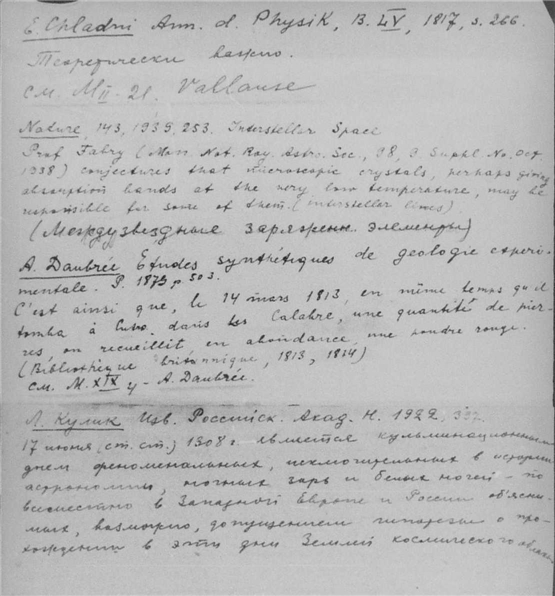 E. Chladni Ann. d. Physik, B. LV, 1817, s. 266.
Теоретически важно.
см. M II - 21. Vallause
Nature, 143, 1939, 253. Interstellar Space
Prof Fabry (Mon. Not. Roy. Astro. Soc., 98, Suppl. No. Oct
1938) conjectures that microscopic crystals, perhaps giving
absorption bands at the very low temperature, may be
responsible for some of them. (interstellar lines)
(Междузвездные заряжен. элементы)
A. Daubrée Etudes synthétiques de geologie experi-
mentale. P. 1879, p 503.
C'est ainsi que, le 14 mars 1813, en même temps qu'il
tomba à Cutro, dans les Calabre, une quantité de pier-
res, on recueillit en abondance une poudre rouge.
(Bibliothèque britannique, 1813, 1814)
см. M. XIX - A. Daubrée.
Л. Кулик Изв. Российск. Акад. Н. 1922,
17 июня (ст. ст.) 1908 г является кульминационным
днем феноменальных, исключительных в истории
астрономии, ночных зорь и белых ночей - по-
всеместно в Западной Европе и России об'ясни-
мых, возможно, допущением гипотезы о про-
хождении в эти дни Землей космического облака